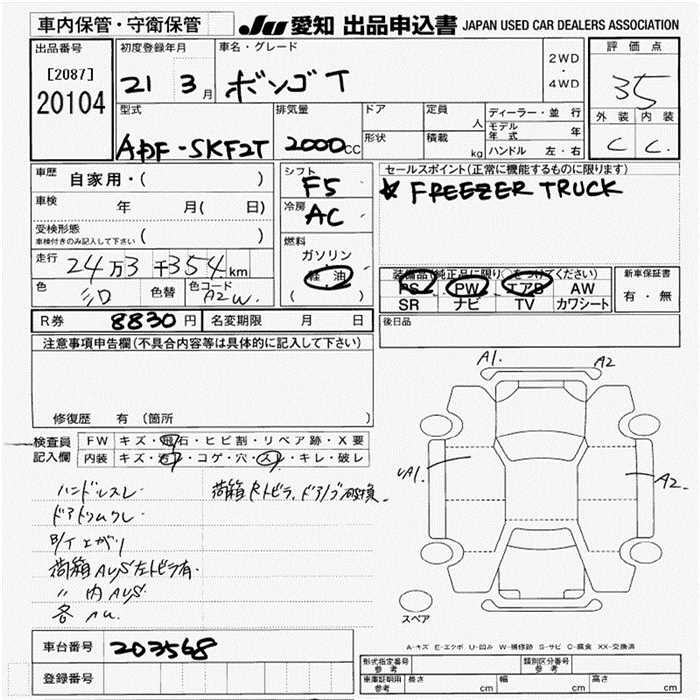 車内保管・守衛保管
JU 愛知 出品申込書 JAPAN USED CAR DEALERS ASSOCIATION
出品番号
[2087]
20104
初度登録年月
21 3月
車名・グレード
ボンゴT
2WD
・
4WD
評価点
35
外装 内装
C C
型式
ADF-SKF2T
排気量
2000cc
ドア
形状
定員
人
積載
kg
ディーラー・並行
モデル年式 年
ハンドル 左・右
車歴
自家用・( )
車検 年 月( 日)
受検形態
車検付きのみ記入して下さい ( )
走行
24万3千354km
色
シロ
色替
色コード
A2W
シフト
F5
冷房
AC
燃料
ガソリン
軽油
( )
セールスポイント(正常に機能するものに限ります)
☆ FREEZER TRUCK
装備品(純正品に限り○をつけてください)
PS PW エアB AW
SR ナビ TV カワシート
新車保証書
有・無
R券 8830円
名変期限 月 日
後日品
注意事項申告欄(不具合内容等は具体的に記入して下さい)
修復歴 有 (箇所 )
検査員
記入欄
FW キズ・飛石・ヒビ割・リペア跡・X要
内装 キズ・汚レ・コゲ・穴・スレ・キレ・破レ
ハンドルスレ
荷箱Rトビラ、ドアノブ破損
ドアトリムクレ
荷箱AUS左トビラ有
〃 内AUS
各AU
A1.
A2
A1.
A2.
スペア
A-キズ E-エクボ U-凹み W-補修跡 S-サビ C-腐食 XX-交換済
車台番号 203568
登録番号
形式指定番号
参考
類別区分番号
参考
車庫証明用
参考
長さ cm
幅 cm
高さ cm